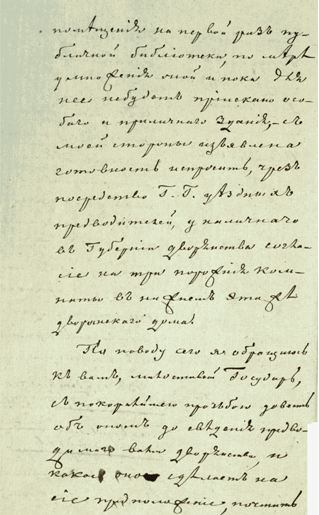 помѣщенія на первой разъ пу-
бличной библіотеки по мѣрѣ
умноженія оной и пока для
нее небудетъ пріискано осо-
баго и приличнаго зданія, – съ
моей стороны изъявлена
готовность испросить, чрезъ
посредство Г. Г. уѣздныхъ
предводителей, у наличнаго
въ Губерніи дворянства согла-
сіе на три порожнія ком-
наты въ нижнемъ этажѣ
дворянскаго дома.
По поводу сего я обращаюсь
къ вамъ, милостивой Государь,
съ покорнѣйшею прозьбою довесть
объ ономъ до свѣденія предво-
димаго вами дворянства, и
какое оно сдѣлаетъ на
сіе предположеніе, почтить